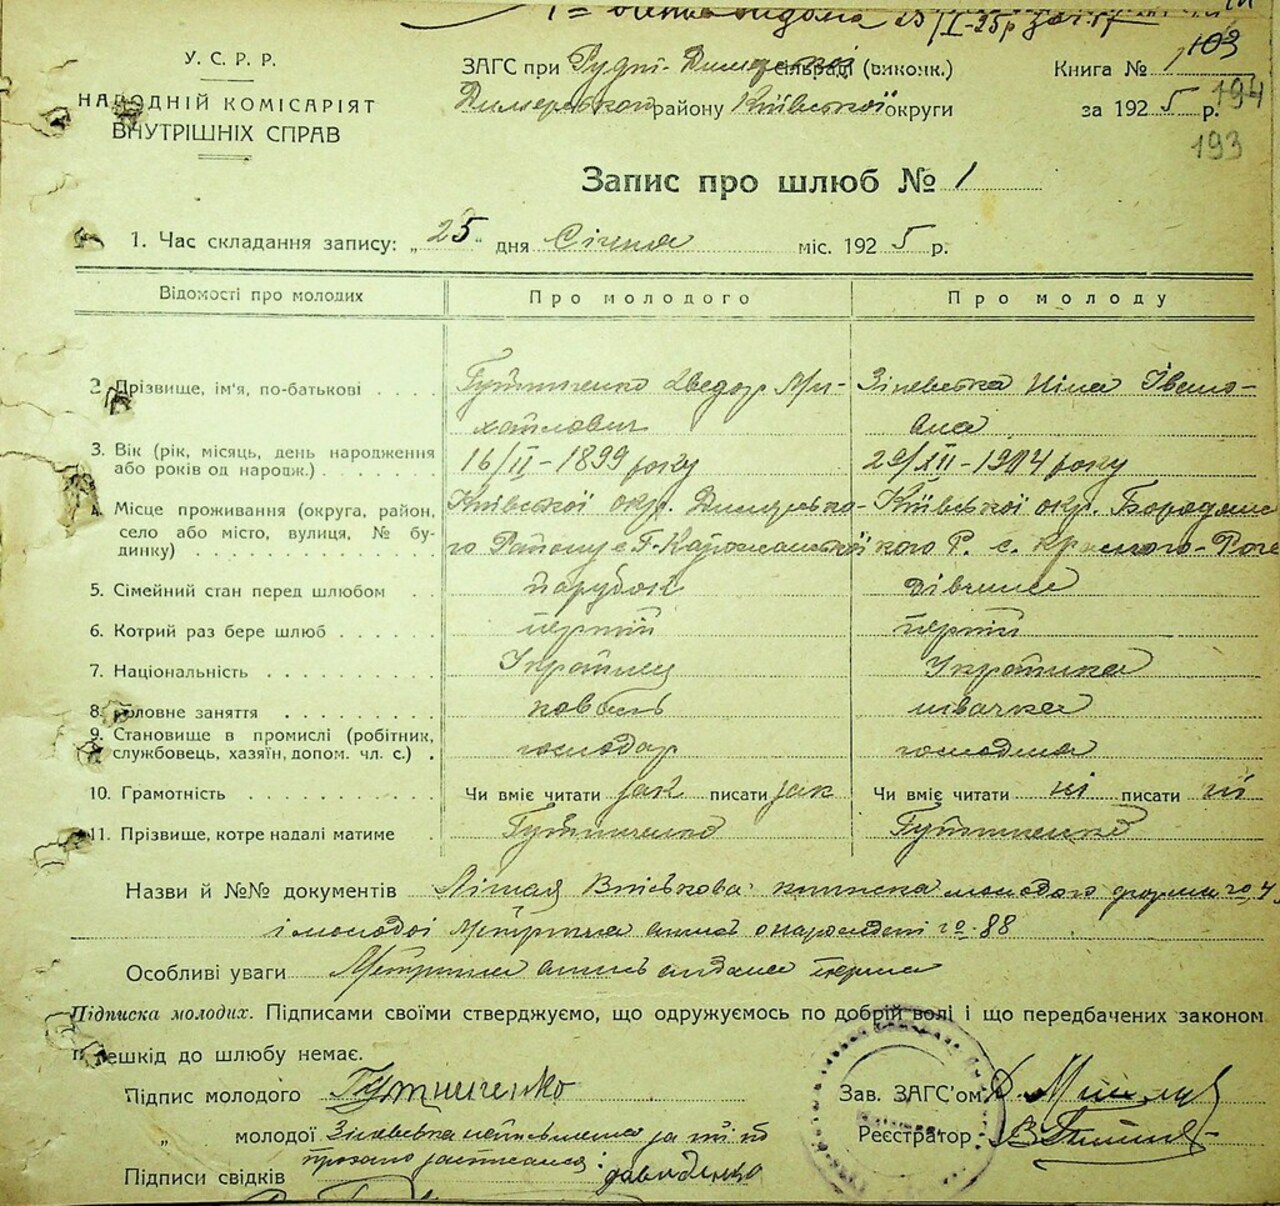 1=
У. С. Р. Р.
НАРОДНІЙ КОМІСАРІЯТ
ВНУТРІШНІХ СПРАВ
ЗАГС при Рудні-Димерській сільраді (виконк.)
Димерського району Київської округи
Книга № 103
за 1925 р. 194
193
Запис про шлюб № 1
1. Час складання запису: „25" дня Січня міс. 1925 р.
Відомості про молодих Про молодого Про молоду
2. Прізвище, ім'я, по-батькові Гутниченко Хведор Ми- Зіневська Ніна Івано-
хайлович вна
3. Вік (рік, місяць, день народження 16/II-1899 року 29/XII-1904 року
або років од народж.)
4. Місце проживання (округа, район, Київської окр. Димерсько- Київської окр. Бородянс
село або місто, вулиця, № бу- го Району с кого Р. с.
динку)
5. Сімейний стан перед шлюбом парубок дівчина
6. Котрий раз бере шлюб перший перший
7. Національність Українец Українка
8. Головне заняття коваль швачка
9. Становище в промислі (робітник, господар господиня
службовець, хазяїн, допом. чл. с.)
10. Грамотність Чи вміє читати так писати так Чи вміє читати ні писати ні
11. Прізвище, котре надалі матиме Гутниченко Гутниченко
Назви й №№ документів Військова книжка молодого
і молодої Метрична о народженні № 88
Особливі уваги Метрична
Підписка молодих. Підписами своїми стверджуємо, що одружуємось по добрій волі і що передбачених законом
перешкід до шлюбу немає.
Підпис молодого Гутниченко
„ молодої Зіневська неписьменна
Підписи свідків Давиденко
Зав. ЗАГС'ом
Реєстратор